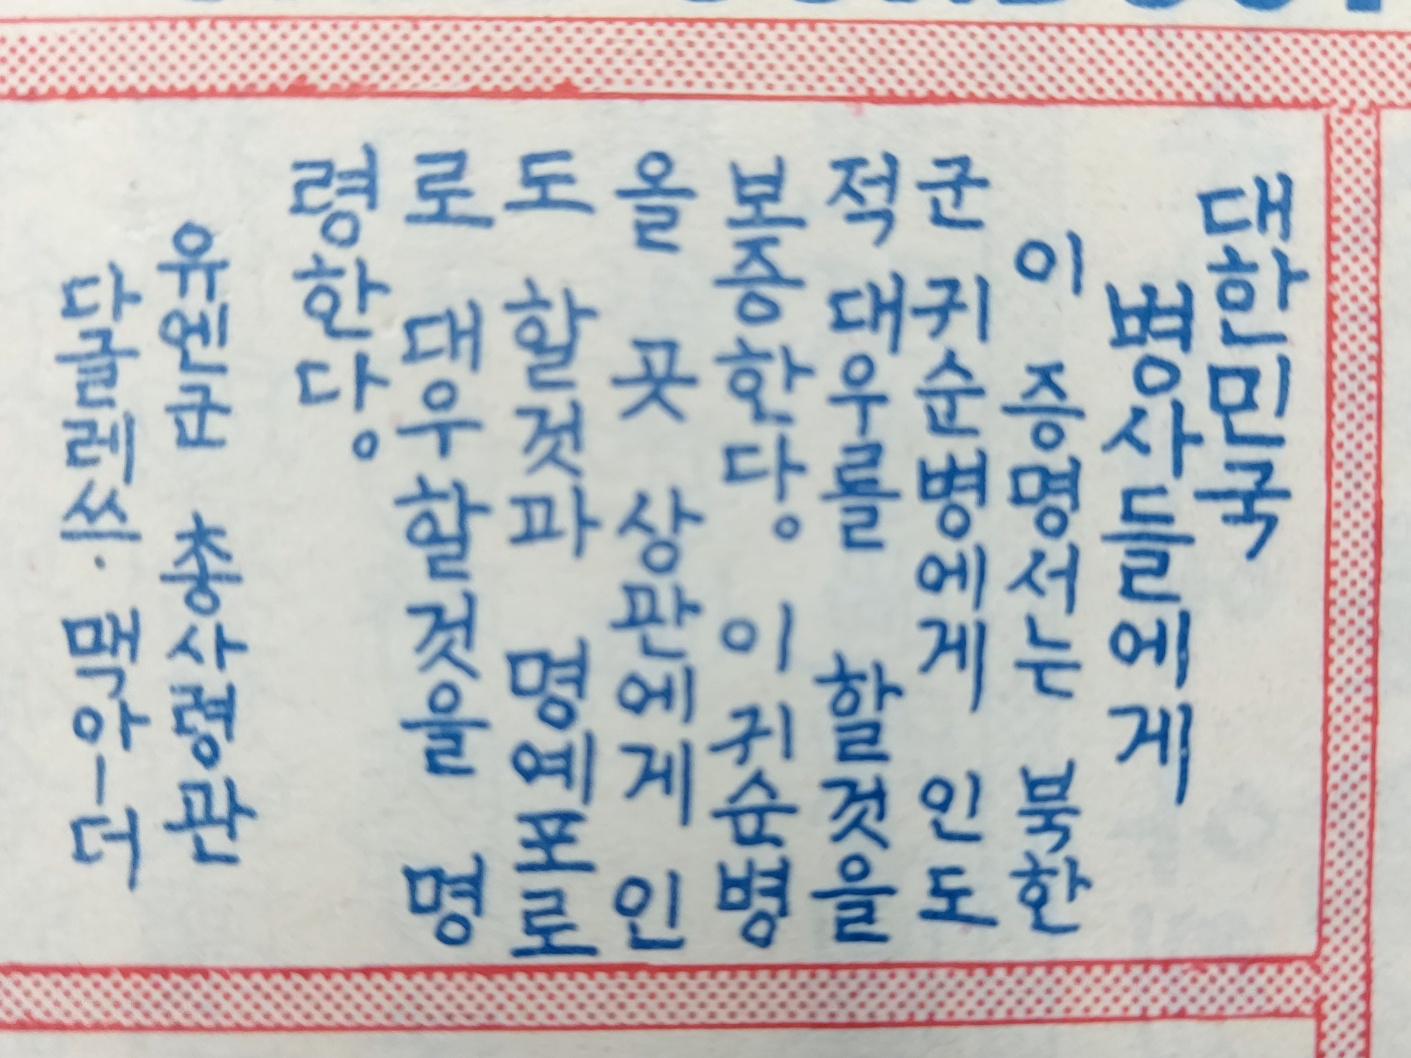 대한민국
병사들에게
이 증명서는 북한
군 귀순병에게 인도
적 대우를 할것을
보증한다. 이 귀순병
을 곳 상관에게 인
도 할것과 명예포로
로 대우할것을 명
령한다.
유엔군 총사령관
다글레쓰·맥아ー더